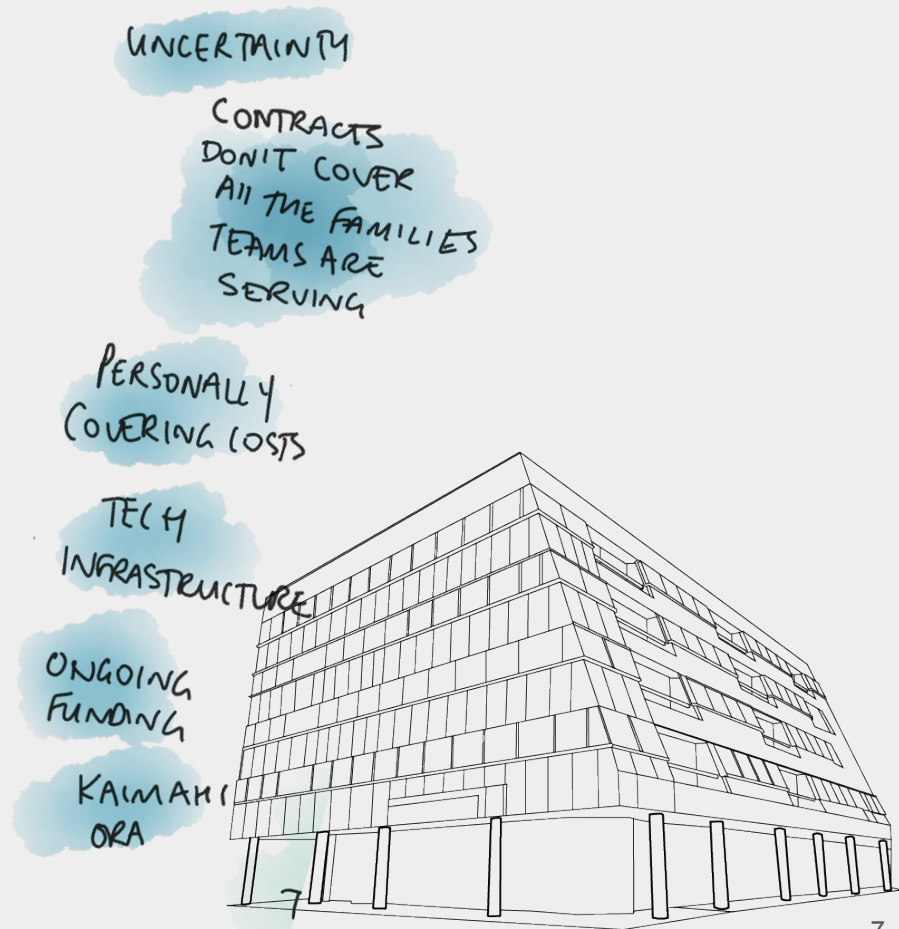 UNCERTAINTY
CONTRACTS
DON'T COVER
All THE FAMILIES
TEAMS ARE
SERVING
PERSONALLY
COVERING COSTS
TECH
INFRASTRUCTURE
ONGOING
FUNDING
KAIMAHI
ORA
7
7